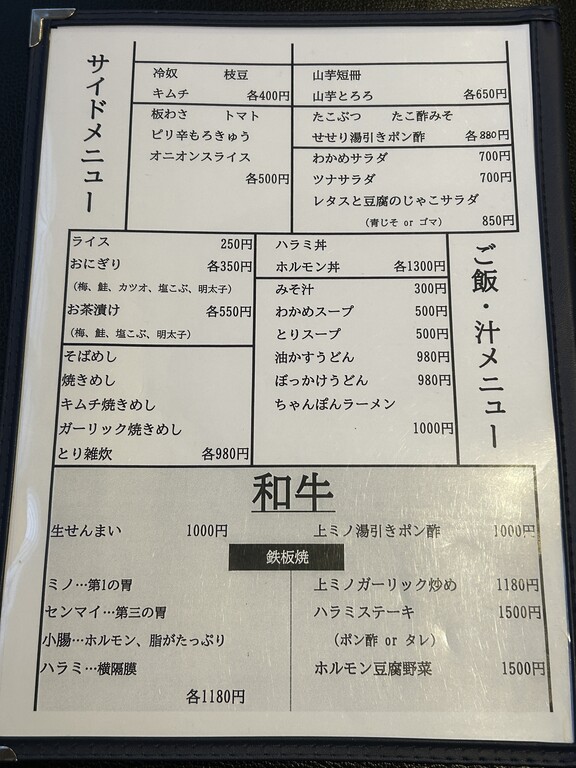 サイドメニュー
冷奴 枝豆
キムチ 各400円
板わさ トマト
ピリ辛もろきゅう
オニオンスライス
各500円
山芋短冊
山芋とろろ 各650円
たこぶつ たこ酢みそ
せせり湯引きポン酢 各880円
わかめサラダ 700円
ツナサラダ 700円
レタスと豆腐のじゃこサラダ
(青じそ or ゴマ) 850円
ご飯・汁メニュー
ライス 250円
おにぎり 各350円
(梅、鮭、カツオ、塩こぶ、明太子)
お茶漬け 各550円
(梅、鮭、塩こぶ、明太子)
そばめし
焼きめし
キムチ焼きめし
ガーリック焼きめし
とり雑炊 各980円
ハラミ丼
ホルモン丼 各1300円
みそ汁 300円
わかめスープ 500円
とりスープ 500円
油かすうどん 980円
ぼっかけうどん 980円
ちゃんぽんラーメン
1000円
和牛
生せんまい 1000円
上ミノ湯引きポン酢 1000円
鉄板焼
ミノ…第1の胃
センマイ…第三の胃
小腸…ホルモン、脂がたっぷり
ハラミ…横隔膜
各1180円
上ミノガーリック炒め 1180円
ハラミステーキ 1500円
(ポン酢 or タレ)
ホルモン豆腐野菜 1500円